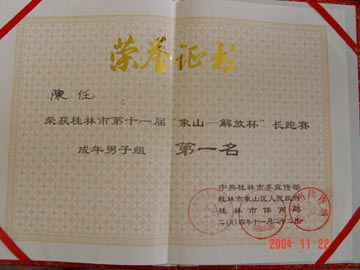 荣誉证书
陳任
荣获桂林市第十一届"象山—解放杯"长跑赛
成年男子组 第一名
中共桂林市委宣传部
桂林市象山区人民政府
桂林市体育局
二〇〇四年十一月二十二日
2004 11 22